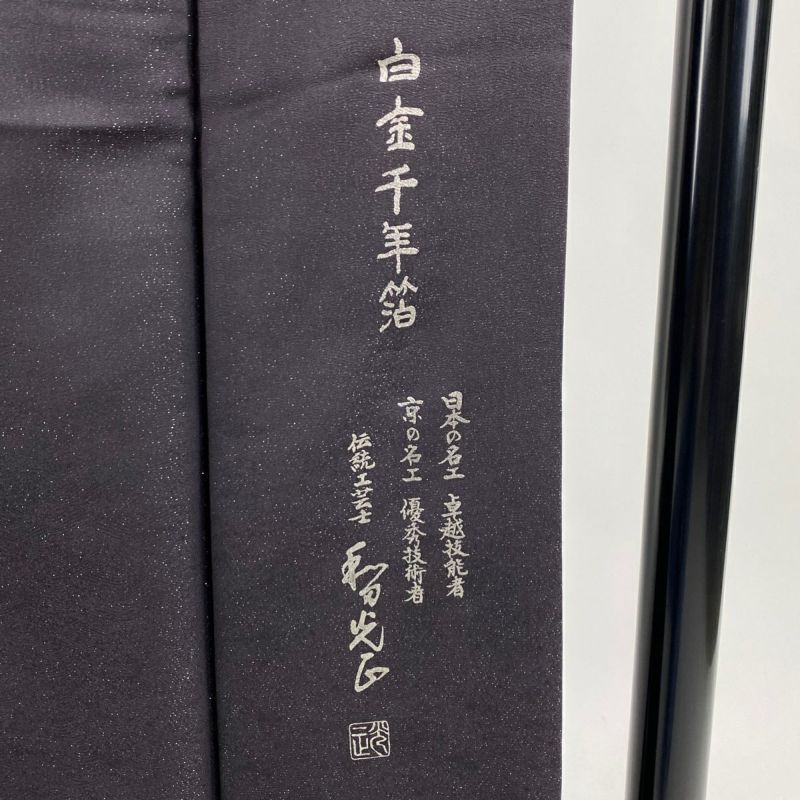 白金千年箔
日本の名工 卓越技能者
京の名工 優秀技術者
伝統工芸士 和田光正
光正